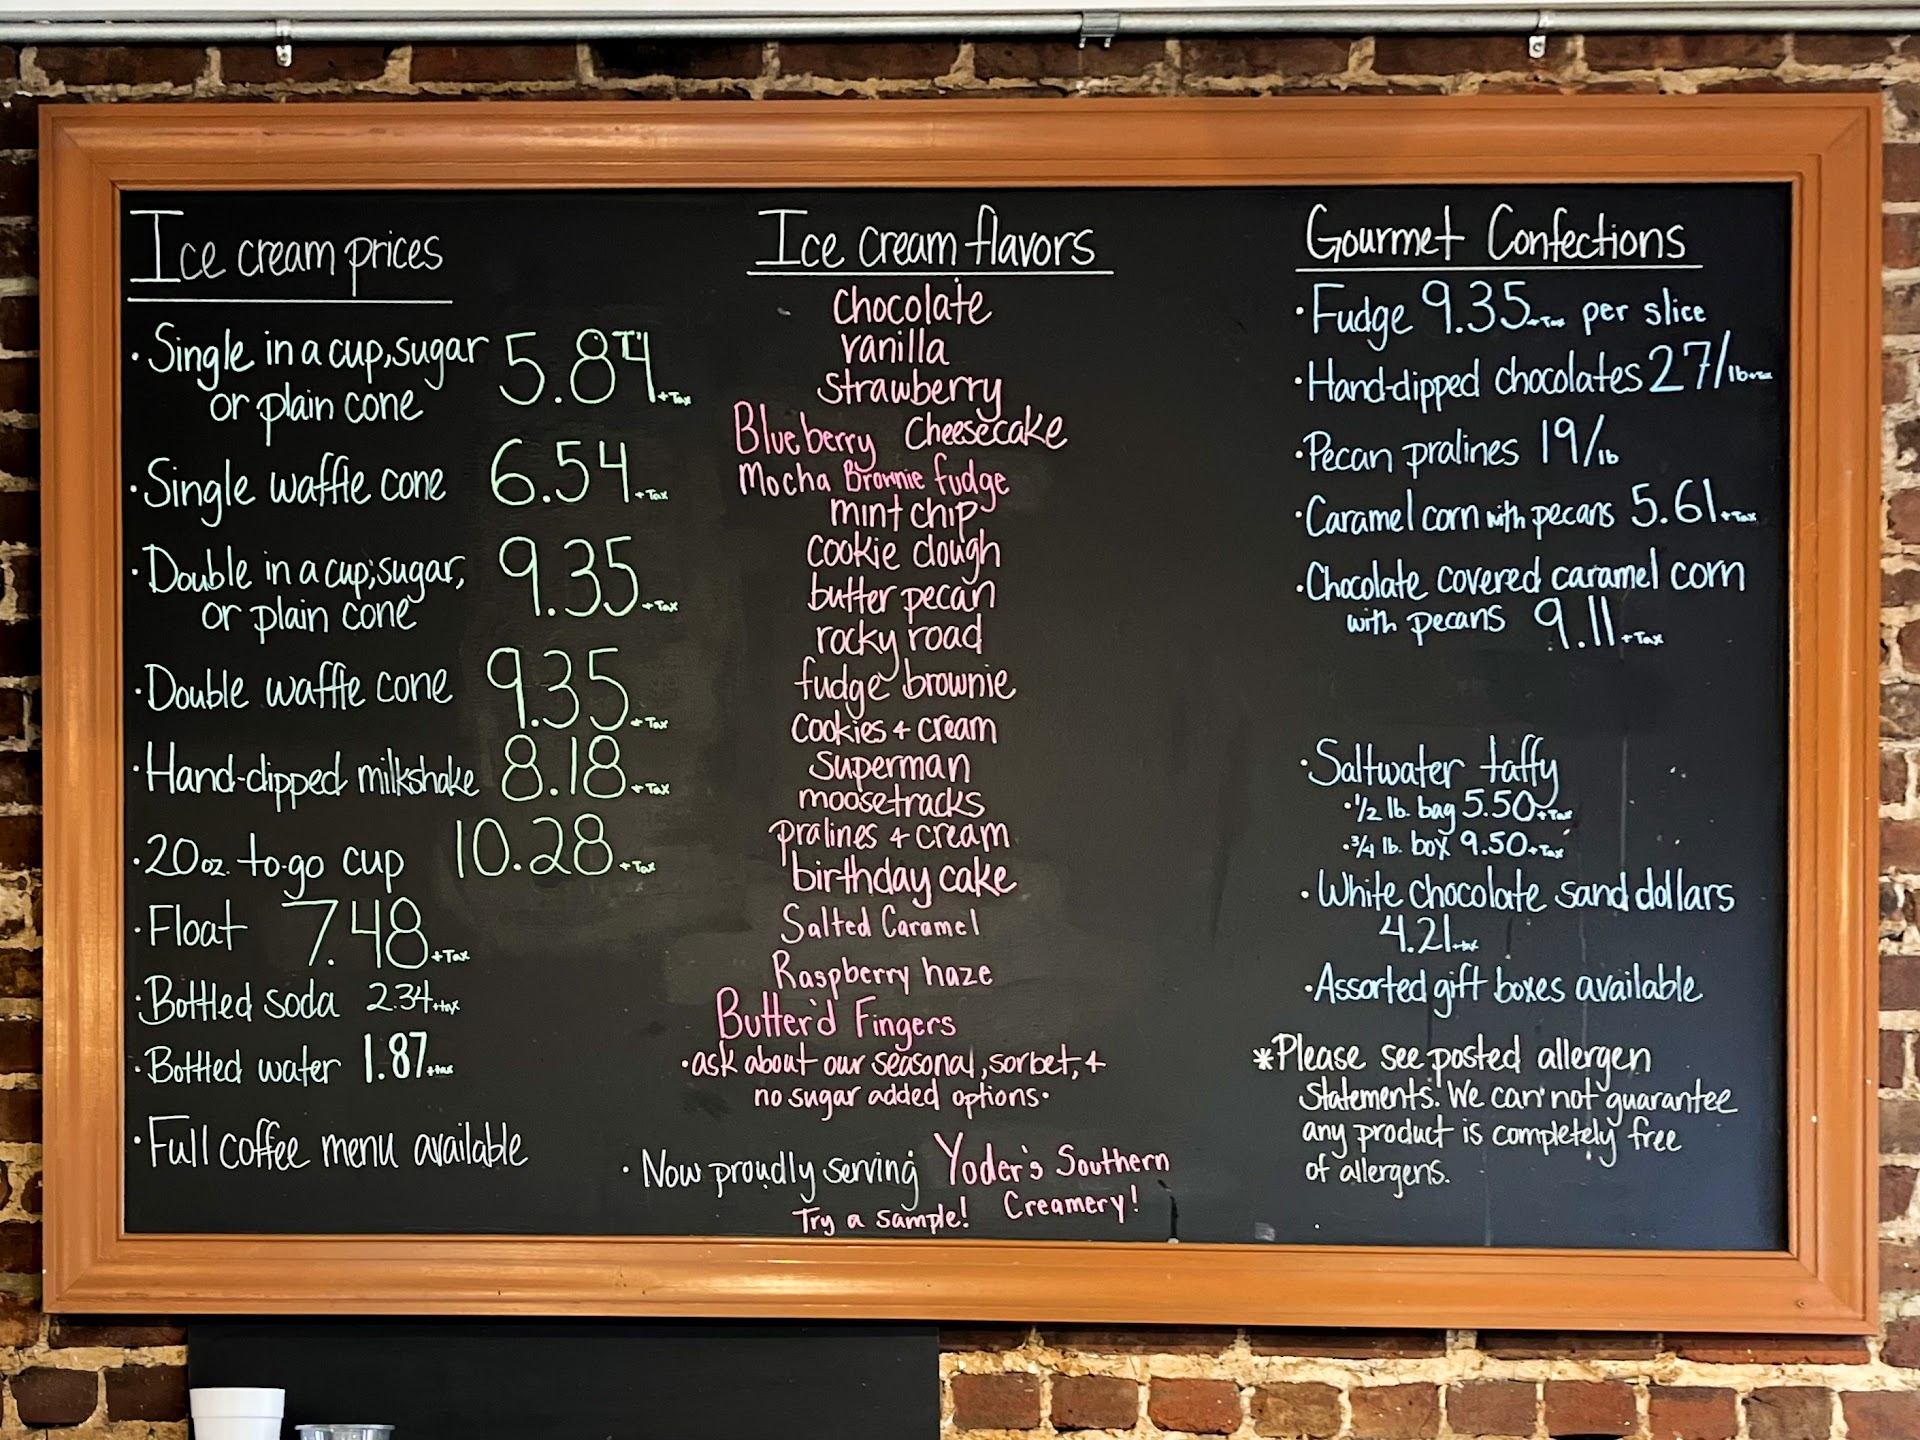 Ice cream prices
• Single in a cup, sugar or plain cone 5.84 + Tax
• Single waffle cone 6.54 + Tax
• Double in a cup, sugar, or plain cone 9.35 + Tax
• Double waffle cone 9.35 + Tax
• Hand-dipped milkshake 8.18 + Tax
• 20 oz. to-go cup 10.28 + Tax
• Float 7.48 + Tax
• Bottled soda 2.34 + tax
• Bottled water 1.87 + tax
• Full coffee menu available
Ice cream flavors
Chocolate
vanilla
strawberry
Blueberry Cheesecake
Mocha Brownie fudge
mint chip
cookie dough
butter pecan
rocky road
fudge brownie
cookies + cream
superman
moosetracks
pralines + cream
birthday cake
Salted Caramel
Raspberry haze
Butter'd Fingers
• ask about our seasonal, sorbet, +
no sugar added options •
• Now proudly serving Yoder's Southern
Creamery!
Try a sample!
Gourmet Confections
• Fudge 9.35 + Tax per slice
• Hand-dipped chocolates 27/lb + tax
• Pecan pralines 19/lb
• Caramel corn with pecans 5.61 + Tax
• Chocolate covered caramel corn
with pecans 9.11 + Tax
• Saltwater taffy
• 1/2 lb. bag 5.50 + Tax
• 3/4 lb. box 9.50 + Tax
• White chocolate sand dollars
4.21 + tax
• Assorted gift boxes available
* Please see posted allergen
statements. We can not guarantee
any product is completely free
of allergens.